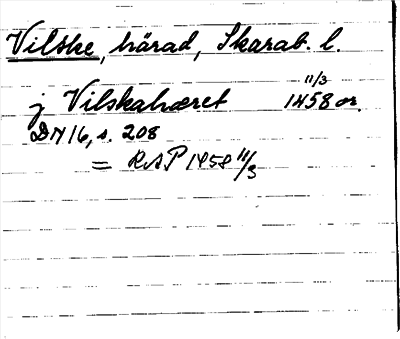 Vilske, härad, Skarab. l.
j Vilskahæret 1458 11/3 or.
DN 16, s. 208
= RAP 1458 11/3